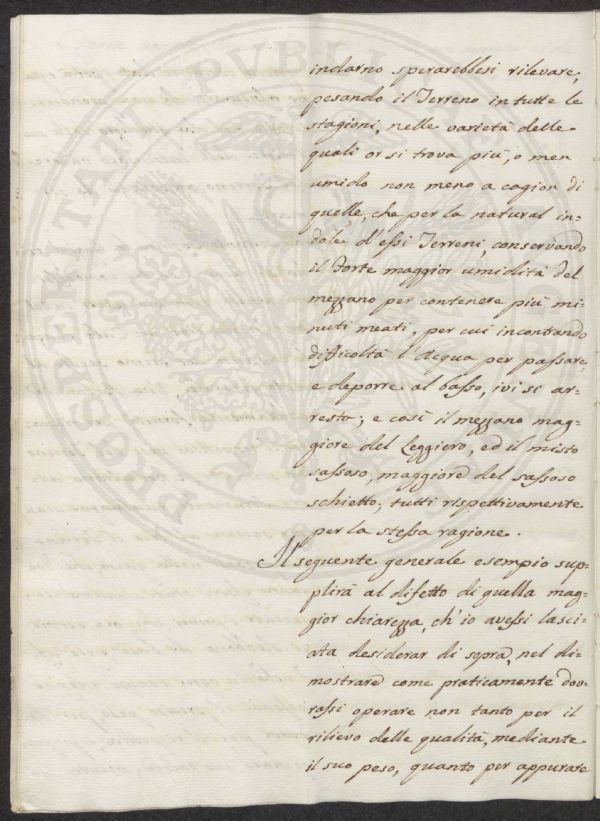 indarno sperarebbesi rilevare;
pesando il Terreno in tutte le
stagioni, nelle varietà delle
quali or si trova più, o men
umido non meno a cagion di
quelle, che per la natural in=
dole d'essi Terreni, conservando
il Forte maggior umidità del
mezzano per contenere più mi=
nuti meati, per cui incontrando
difficoltà l'Acqua per passare,
e deporre al basso, ivi si ar=
resta; e così il mezzano mag=
giore del Leggiero, ed il misto
sassoso, maggiore del sassoso
schietto, tutti rispettivamente
per la stessa ragione.
Il seguente generale esempio sup=
plirà al difetto di quella mag=
gior chiarezza, ch'io avessi lasci=
ata desiderar di sopra, nel di=
mostrare come praticamente dov=
rassi operare non tanto per il
rilievo delle qualità, mediante
il suo peso, quanto per appurare
PROSPERITATI PUBLICAE AUG